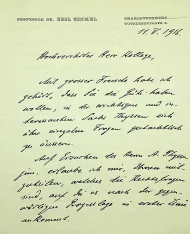 PROFESSOR DR. EMIL SECKEL
CHARLOTTENBURG
11. V. 1916.
Hochverehrter Herr Kollege,
Mit grosser Freude habe ich
gehört, dass Sie die Güte haben
wollen, in der wichtigen und in-
teressanten Sache Thyssen sich
über einzelne Fragen gutachtlich
zu äussern.
Auf Ersuchen des Herrn A. Thyssen
jun. erlaube ich mir, Ihnen mit-
zuteilen, welches die Rechtsfragen
sind, auf die es nach der gegen-
wärtigen Prozesslage in erster Linie
ankommt.